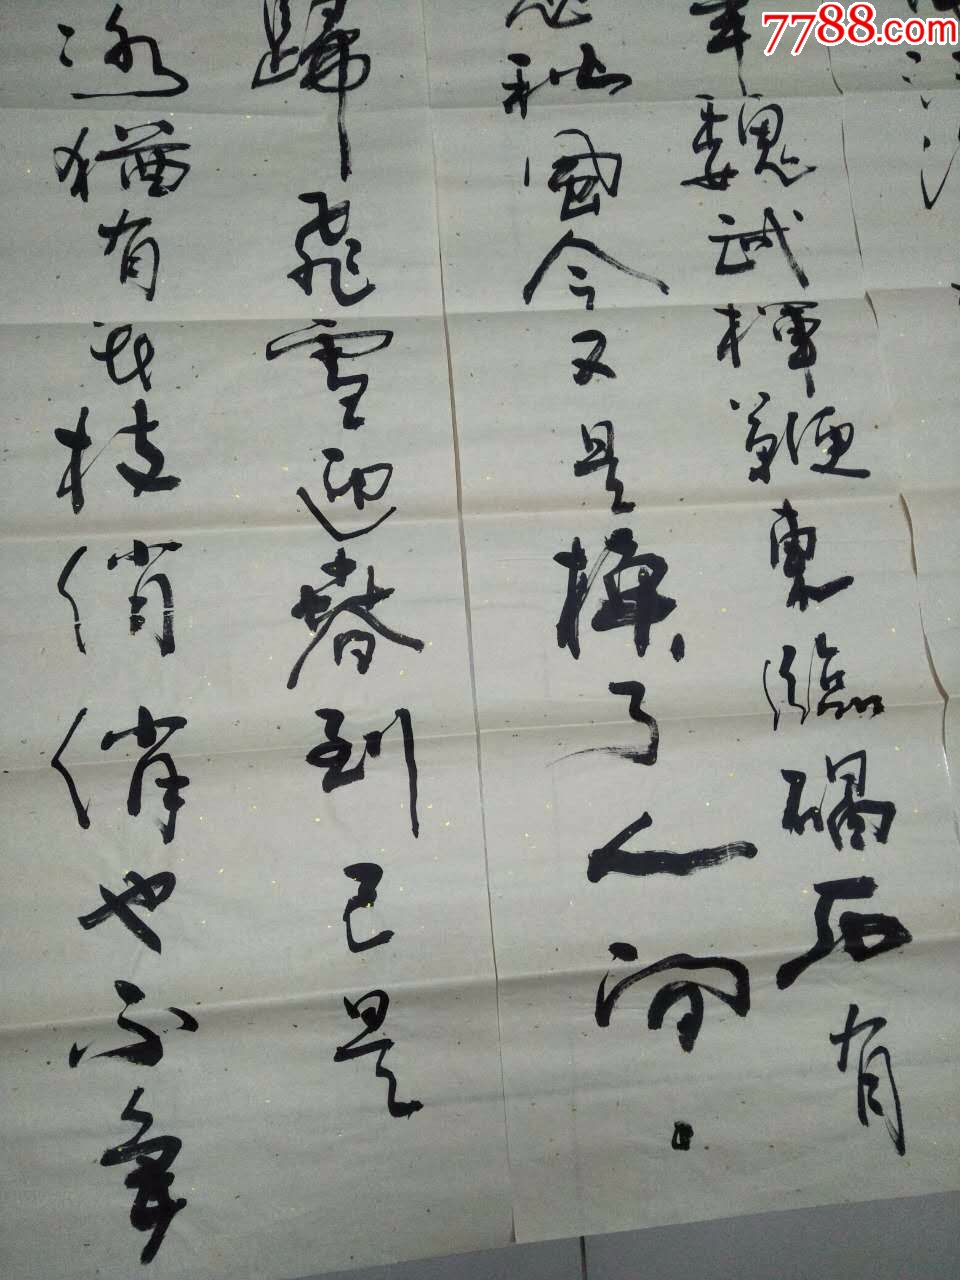 7788.com
中国收藏热线
年魏武揮鞭東臨碣石有
秋風今又是換了人間
歸飛雪迎春到已是
冰猶有花枝俏俏也不爭